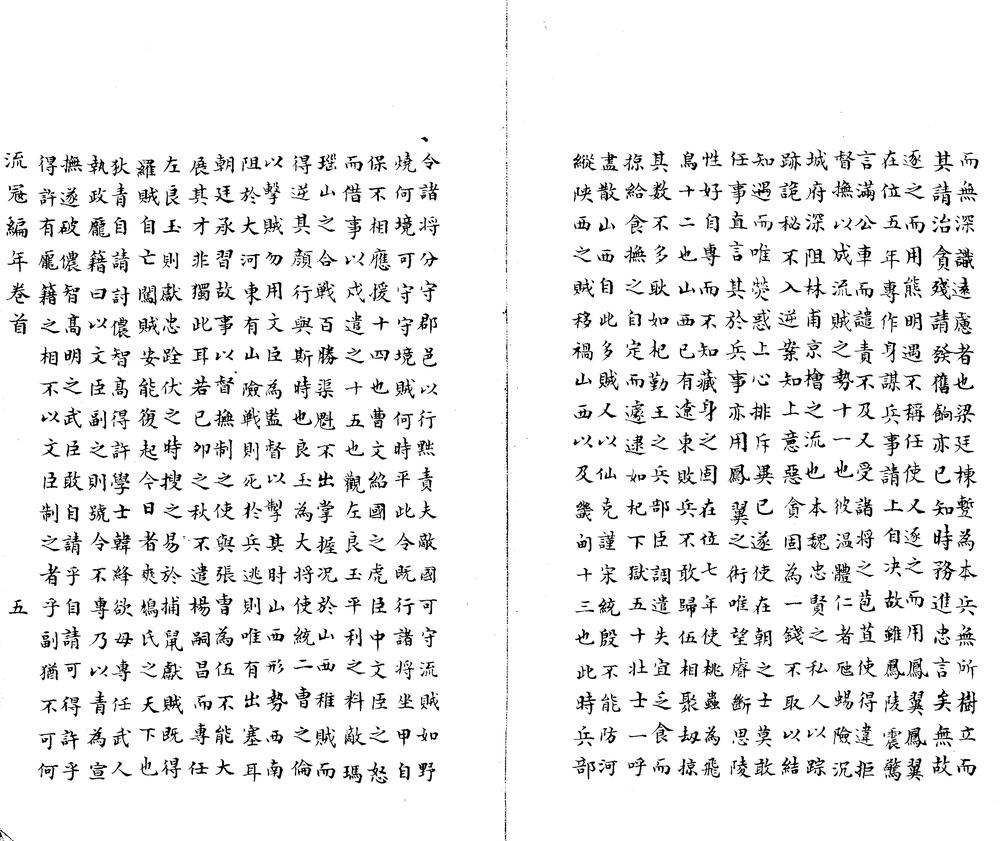 而無深識遠慮者也梁廷棟蹔為本兵無所樹立而
其請治貪殘請發舊餉亦已知時務進忠言矣無故
逐之而用熊明遇不稱任使又逐之而用鳳翼鳳翼
在位五年專作身謀兵事請上自决故雖鳳陵震驚
言滿公車而譴責不及又受諸將之苞苴使得違拒
督撫以成流賊之勢十一也彼溫體仁者虺蜴險沉
城府深阻林甫京檜之流也本魏忠賢之私人以踪
跡詭秘不入逆案知上意惡貪固為一錢不取以結
知遇而唯熒惑上心排斥異已遂使在朝之士莫敢
任事直言其於兵事亦用鳳翼之術唯望睿斷思陵
性好自專而不知藏身之固在位七年使桃蟲為飛
鳥十二也山西已有遼東敗兵不敢歸伍相聚刼掠
其数不多耿如杞勤王之兵部臣調遣失宜乏食而
掠給食撫之自定而遽逮如杞下獄五十壯士一呼
盡散山西自此多賊人以仙克謹宋統殷不能防河
縱陝西之賊移禍山西以及畿甸十三也此時兵部
令諸將分守郡邑以行黙責夫敵國可守流賊如野
燒何境可守守境賊何時平此令既行諸將坐甲自
保不相應援十四也曹文紹國之虎臣中文臣之怒
而借事以戍遣之十五也觀左良玉平利之料敵瑪
瑙山之合戦百勝渠魁不出掌握况於山西稚賊而
得逆其顔行與斯時也良玉為大將使統二曹之倫
以擊賊勿用文臣為監督以掣其肘山西形勢西南
阻於大河東有山險戦則死於兵逃則唯有出塞耳
朝廷承習故事以督撫制之使與張曹為伍不能大
展其才非獨此耳若已夘之秋不遣楊嗣昌而專任
左良玉則獻忠跧伏之時搜之易於捕鼠獻賊既得
羅賊自亡闖賊安能復起今日者爽鳩氏之天下也
狄青自請討儂智高得許學士韓絳欲毋專任武人
執政龐籍曰以文臣副之則號令不專乃以青為宣
撫遂破儂智高明之武臣敢自請乎自請可得許乎
得許有龐籍之相不以文臣制之者乎副猶不可何
流冦編年卷首 五